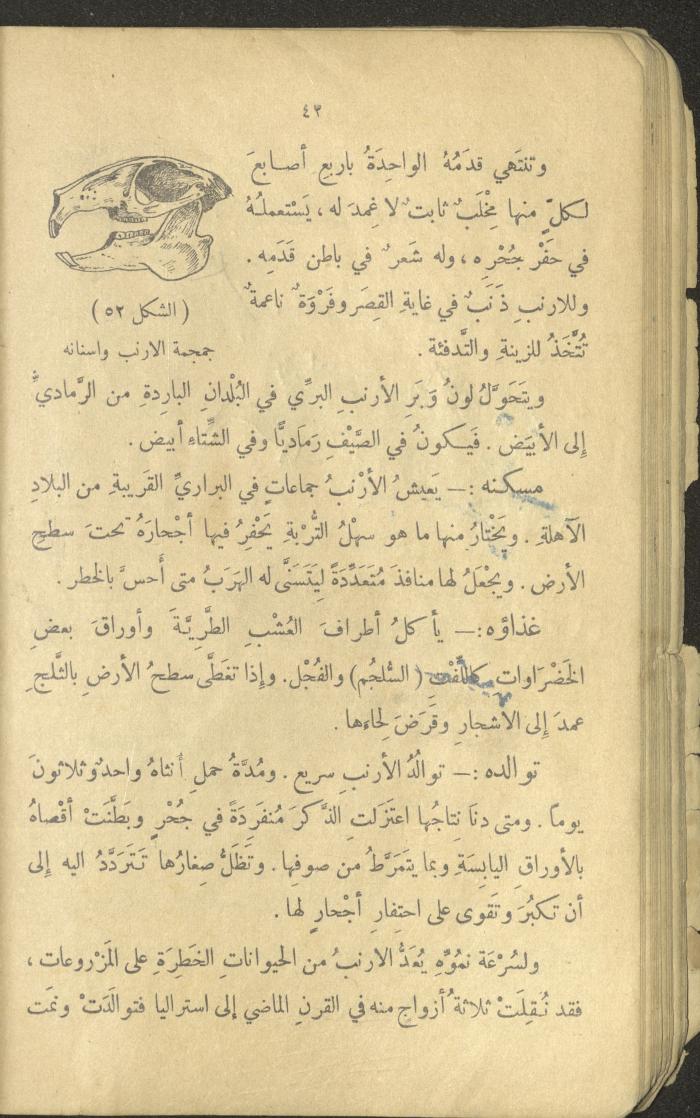 ٤٣
وتنتَهي قدَمُهُ الواحِدَةُ باربع أصابعَ
لكلّ منها مِخْلَبٌ ثابتٌ لا غِمدَ له ، يَسْتعملُهُ
في حَفْر جُحْرِه ، وله شَعرٌ في باطن قَدَمِه .
وللارنبِ ذَنَبٌ في غايةِ القِصَر وفَرْوَةٌ ناعمةٌ
تُتَّخَذُ للزينةِ والتَّدفئة .
( الشكل ٥٢ )
جمجمة الارنب واسنانه
ويتَحَوَّلُ لونُ وَبَرِ الأرنبِ البرِّي في البُلْدانِ البارِدةِ من الرَّماديِّ
إِلى الأَبيَض . فَيكونُ في الصَّيْفِ رَمَاديًّا وفي الشِّتاءِ أبيض .
مسكنه :— يَعيشُ الأرْنبُ جماعاتٍ في البراريِّ القَريبةِ من البلادِ
الآهلةِ . ويَخْتارُ منها ما هو سهْلُ التُّرْبةِ يَحْفِرُ فيها أجْحارَهُ تحتَ سطح
الأرض . ويجْعَلُ لها منافذَ مُتَعَدِّدَةً ليَتَسَنَّى له الهَرَبُ متى أحسَّ بالخطر .
غذاؤه :— يأكلُ أطرافَ العُشْبِ الطَّرِيَّةَ وأوراقَ بعضِ
الخَضْرَاوات كاللِّفْتِ ( السُّلجُم ) والفُجْل. وإذا تغَطَّى سطحُ الأرضِ بالثَّلجِ
عمدَ إِلى الأشجارِ وقَرَضَ لحاءها .
توالده :— توالُدُ الأرنبِ سريع . ومُدَّةُ حملِ أُنثاهُ واحدٌ وثلاثونَ
يوماً . ومتى دنَا نِتاجُها اعتَزَلتِ الذَّكرَ مُنفَرِدَةً في جُحْرٍ وبَطَّنَتْ أقْصاهُ
بالأوراقِ اليابِسَةِ وبما يتَمَرَّطُ من صوفِها . وتَظَلُّ صِغارُها تَتَردَّدُ اليه إِلى
أن تكبُرَ وتَقوى على احتِفارِ أجْحارٍ لها .
ولسُرْعَة نمُوِّهِ يُعَدُّ الارنبُ من الحيواناتِ الخَطِرَةِ على المَزْروعات ،
فقد نُقِلَتْ ثلاثةُ أزواجٍ منه في القرنِ الماضي إلى استراليا فتوالَدَتْ ونمَت